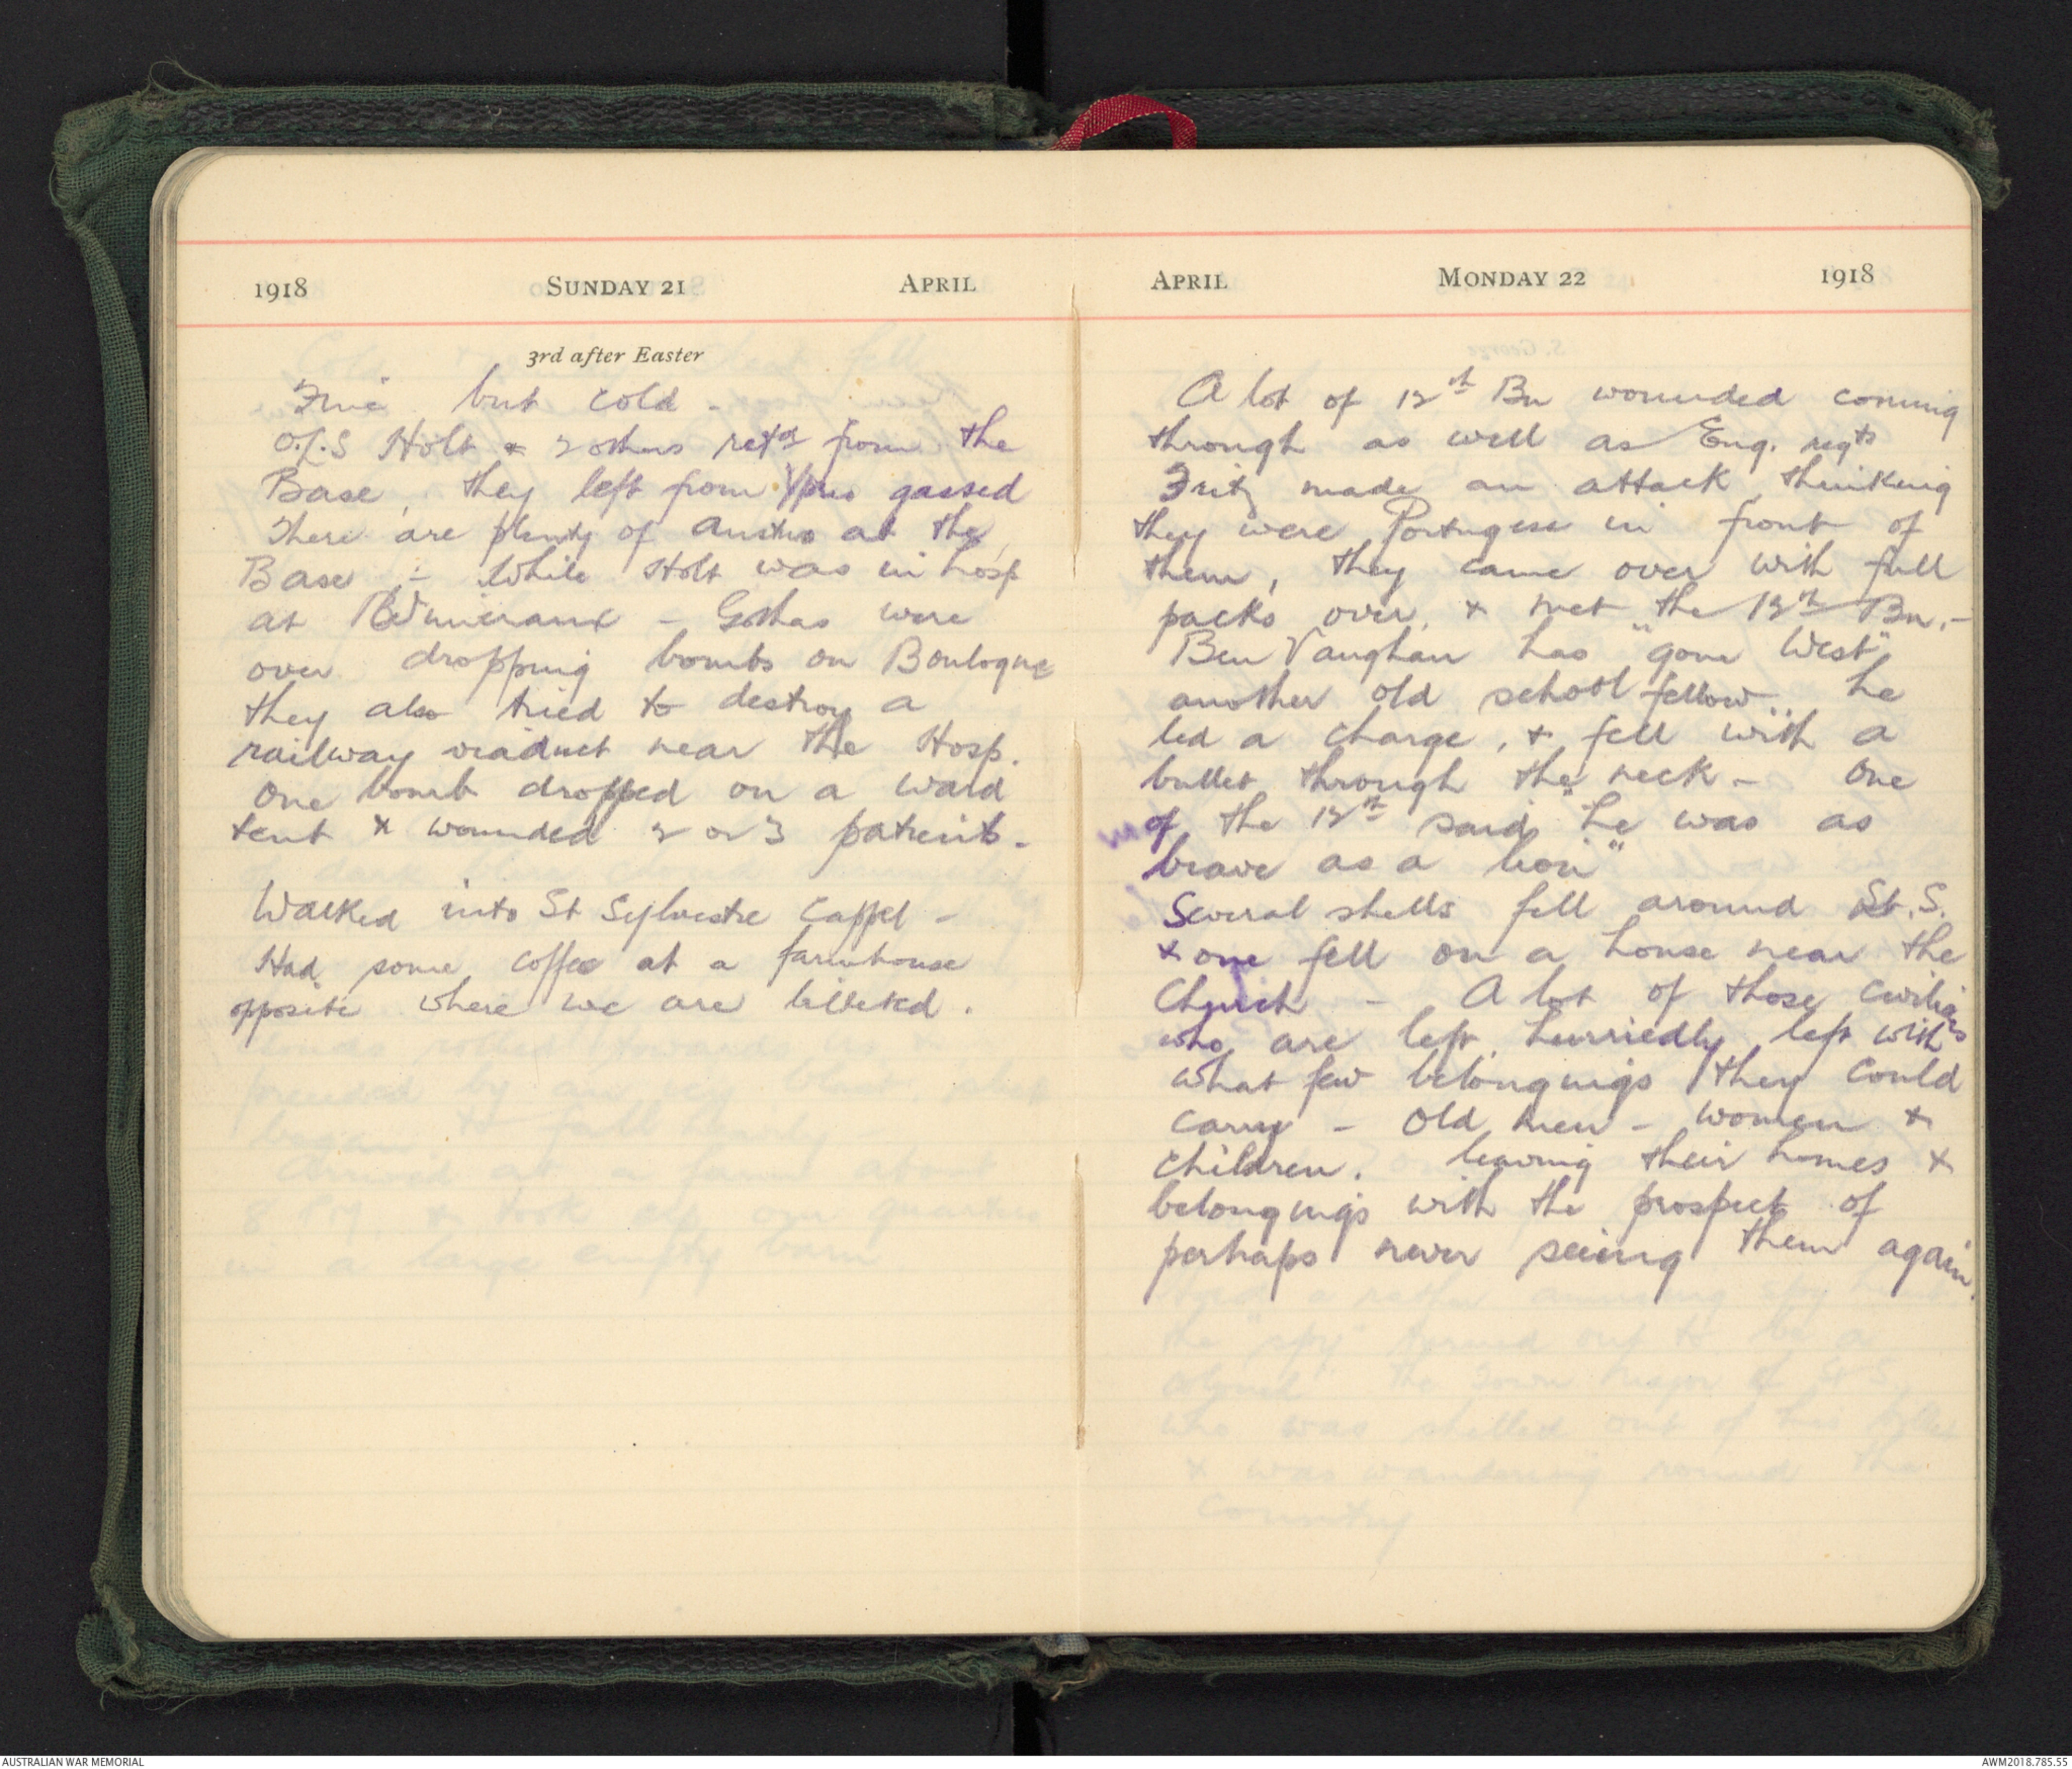 1918 SUNDAY 21 APRIL
3rd after Easter
Fine but cold -
Holt & 2 others retd from the
Base, they left from Ypres gassed
There are plenty of Austns at the
Base - While Holt was in hosp
at - Gothas were
over dropping bombs on Boulogne
they also tried to destroy a
railway viaduct near the Hosp.
One bomb dropped on a ward
tent & wounded 2 or 3 patients -
Walked into St Sylvestre Cappel -
Had some coffee at a farmhouse
opposite where we are billeted.
APRIL MONDAY 22 1918
A lot of 12th Bn wounded coming
through as well as Eng. regts
Fritz made an attack thinking
they were Portugese in front of
them, they came over with full
packs over, & met the 12th Bn. -
Ben Vaughan has "gone West"
another old school fellow. he
led a charge, & fell with a
bullet through the neck - One
of the 12th said "he was as
brave as a lion"
Several shells fell around St. S.
& one fell on a house near the
Church - A lot of those civilians
who are left hurriedly left with
what few belongings they could
carry - Old men - women &
children. leaving their homes &
belongings with the prospect of
perhaps never seeing them again.
AUSTRALIAN WAR MEMORIAL
AWM2018.785.55